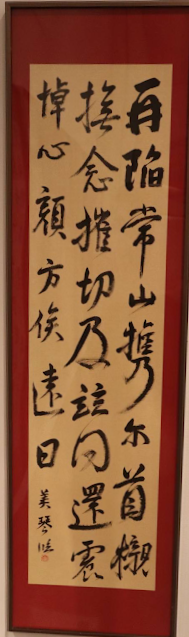 再陷常山携尔首櫬
撫念摧切及玆同還震
悼心顔方俟遠日
美琴臨